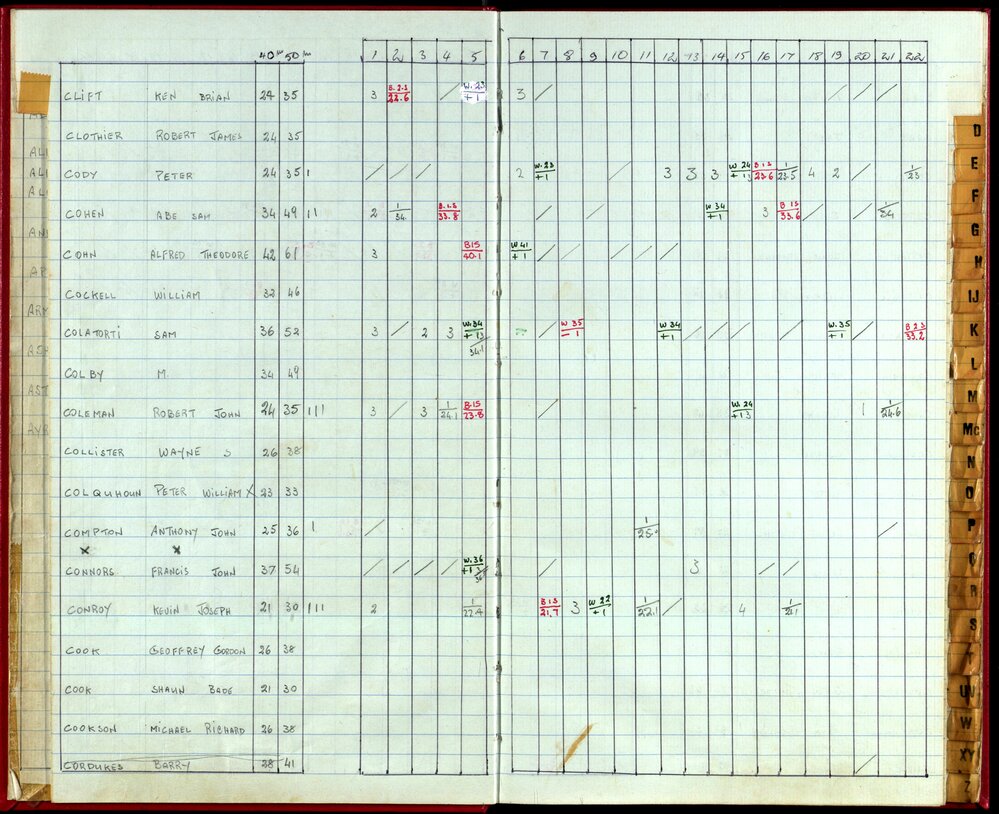 40 50 1 2 3 4 5 6 7 8 9 10 11 12 13 14 15 16 17 18 19 20 21 22
CLIFT KEN BRIAN 24 35 3 B.2.S 22.6 / W.23 +1 3 / / / /
CLOTHIER ROBERT JAMES 24 35
CODY PETER 24 35 I / / / 2 W.23 +1 / 3 3 3 W 24 +1 B 1 S 23.6 1 23.5 4 2 / 1 23
COHEN ABE SAM 34 49 II 2 1 34 B.1.S 33.8 / / W 34 +1 3 B 1S 33.6 / / 1 34
COHN ALFRED THEODORE 42 61 3 B1S 40.1 W 41 +1 / / / / /
COCKELL WILLIAM 32 46
COLATORTI SAM 36 52 3 / 2 3 W.34 +1 34.1 / W 35 -1 W 34 +1 / / / / W.35 +1 / B 2 S 33.2
COLBY M. 34 49
COLEMAN ROBERT JOHN 24 35 III 3 / 3 1 24.1 B.1S 23.8 / W.24 +1 1 1 24.6
COLLISTER WAYNE S 26 38
COLQUHOUN PETER WILLIAM X 23 33
COMPTON ANTHONY JOHN 25 36 I / 1 25 /
x x
CONNORS FRANCIS JOHN 37 54 / / / / W.36 +1 / 3 / /
CONROY KEVIN JOSEPH 21 30 III 2 1 22.4 B 1S 21.7 3 W 22 +1 1 22.1 / 4 1 21.1
COOK GEOFFREY GORDON 26 38
COOK SHAUN BADE 21 30
COOKSON MICHAEL RICHARD 26 38
CORDUKES BARRY 28 41 /
ALI
ALI
ALI
AN
AP
ARM
ASH
AST
AYR
D
E
F
G
H
IJ
K
L
M
Mc
N
O
P
Q
R
S
T
UV
W
XY
Z